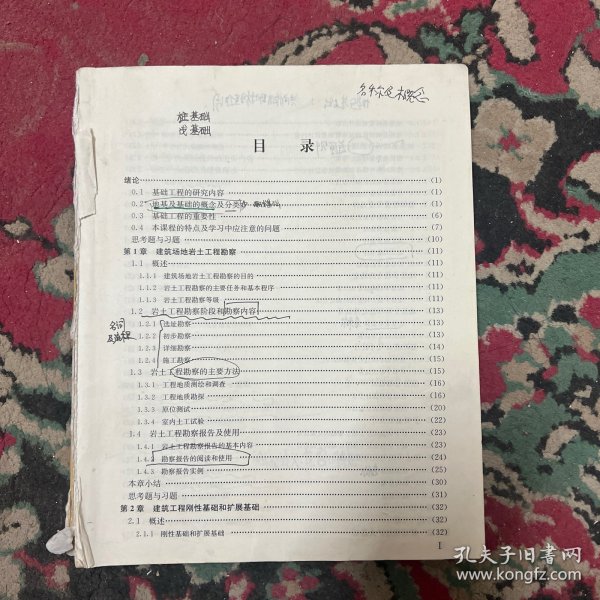 桩基础
浅基础
目 录
绪论 (1)
0.1 基础工程的研究内容 (1)
0.2 地基及基础的概念及分类 (1)
0.3 基础工程的重要性 (6)
0.4 本课程的特点及学习中应注意的问题 (7)
思考题与习题 (10)
第1章 建筑场地岩土工程勘察 (11)
1.1 概述 (11)
1.1.1 建筑场地岩土工程勘察的目的 (11)
1.1.2 岩土工程勘察的主要任务和基本程序 (11)
1.1.3 岩土工程勘察等级 (11)
1.2 岩土工程勘察阶段和勘察内容 (13)
1.2.1 选址勘察 (13)
1.2.2 初步勘察 (13)
1.2.3 详细勘察 (14)
1.2.4 施工勘察 (15)
1.3 岩土工程勘察的主要方法 (15)
1.3.1 工程地质测绘和调查 (16)
1.3.2 工程地质勘探 (16)
1.3.3 原位测试 (20)
1.3.4 室内土工试验 (22)
1.4 岩土工程勘察报告及使用 (23)
1.4.1 岩土工程勘察报告的基本内容 (23)
1.4.2 勘察报告的阅读和使用 (24)
1.4.3 勘察报告实例 (25)
本章小结 (30)
思考题与习题 (31)
第2章 建筑工程刚性基础和扩展基础 (32)
2.1 概述 (32)
2.1.1 刚性基础和扩展基础 (32)
I
孔夫子旧书网
www.kongfz.com